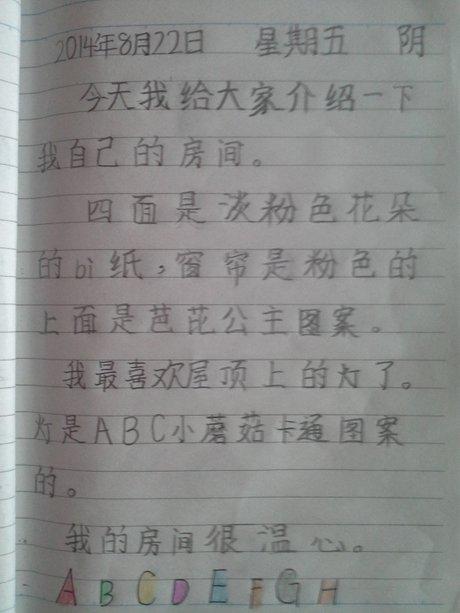 2014年8月22日 星期五 阴
今天我给大家介绍一下
我自己的房间。
四面是淡粉色花朵
的bi纸，窗帘是粉色的
上面是芭芘公主图案。
我最喜欢屋顶上的灯了。
灯是ABC小蘑菇卡通图案
的。
我的房间很温心。
A B C D E F G H